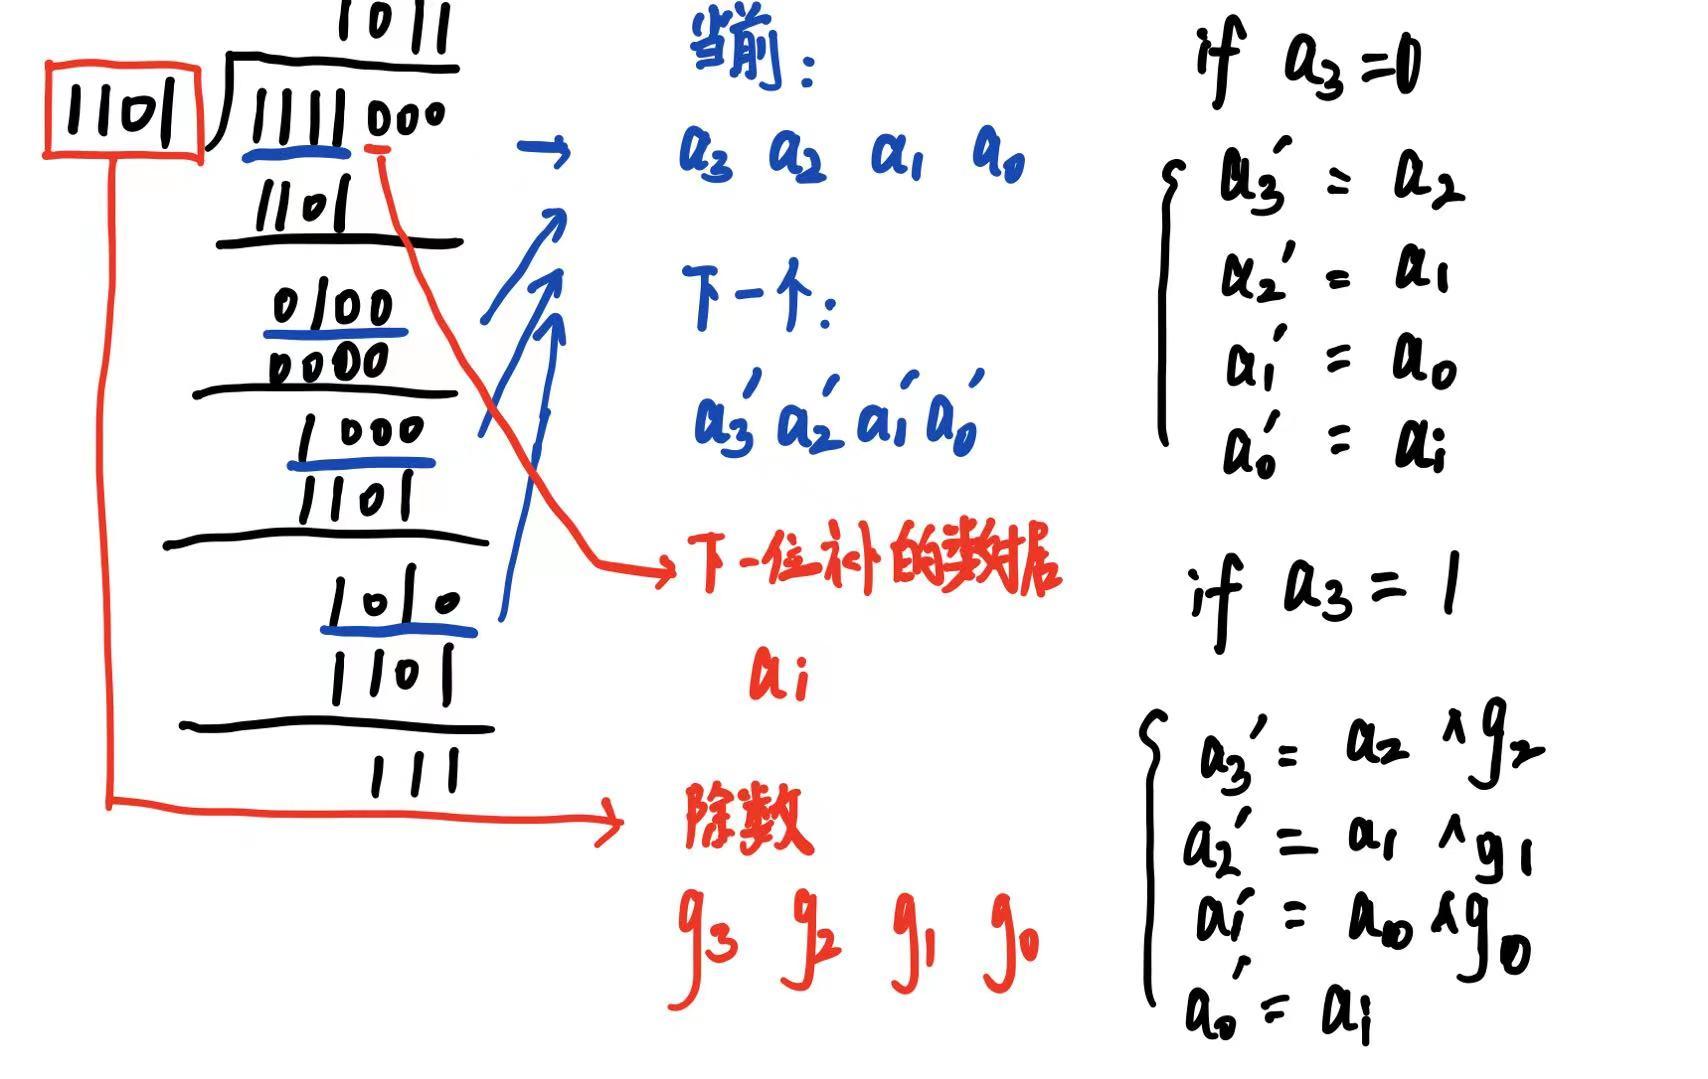 1011
1101
1111000
1101
0100
0000
1000
1101
1010
1101
111
当前:
a3 a2 a1 a0
下一个:
a3' a2' a1' a0'
下一位补的数据
ai
除数
g3 g2 g1 g0
if a3=0
a3' = a2
a2' = a1
a1' = a0
a0' = ai
if a3 = 1
a3' = a2 ^g2
a2' = a1 ^g1
a1' = a0 ^g0
a0' = ai